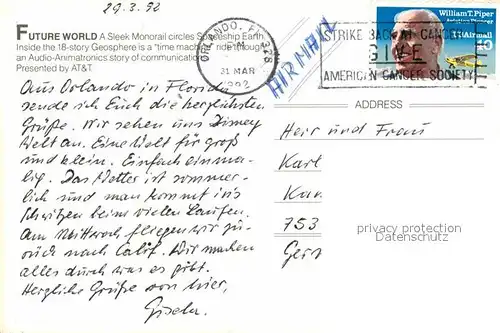 29.3.92
FUTURE WORLD A Sleek Monorail circles Spaceship Earth.
Inside the 18-story Geosphere is a "time machine" ride through
an Audio-Animatronics story of communication.
Presented by AT&T
ORLANDO, FL 328
PM
31 MAR
1992
AIRMAIL
STRIKE BACK AT CANCER
GIVE
AMERICAN CANCER SOCIETY
William T. Piper
Aviation Pioneer
USAirmail
40
Aus Orlando in Florida
sende ich Euch die herzlichsten
Grüße. Wir sehen uns Disney
Welt an. Eine Welt für groß
und klein. Einfach einma-
lig. Das Wetter ist sommer-
lich und man kommt ins
Schwitzen beim vielen Laufen.
Am Mittwoch fliegen wir zu-
rück nach Calif. Wir machen
alles durch was es gibt.
Herzliche Grüße von hier,
Gisela.
ADDRESS
Herr und Frau
Karl
753
Ger
privacy protection
Datenschutz